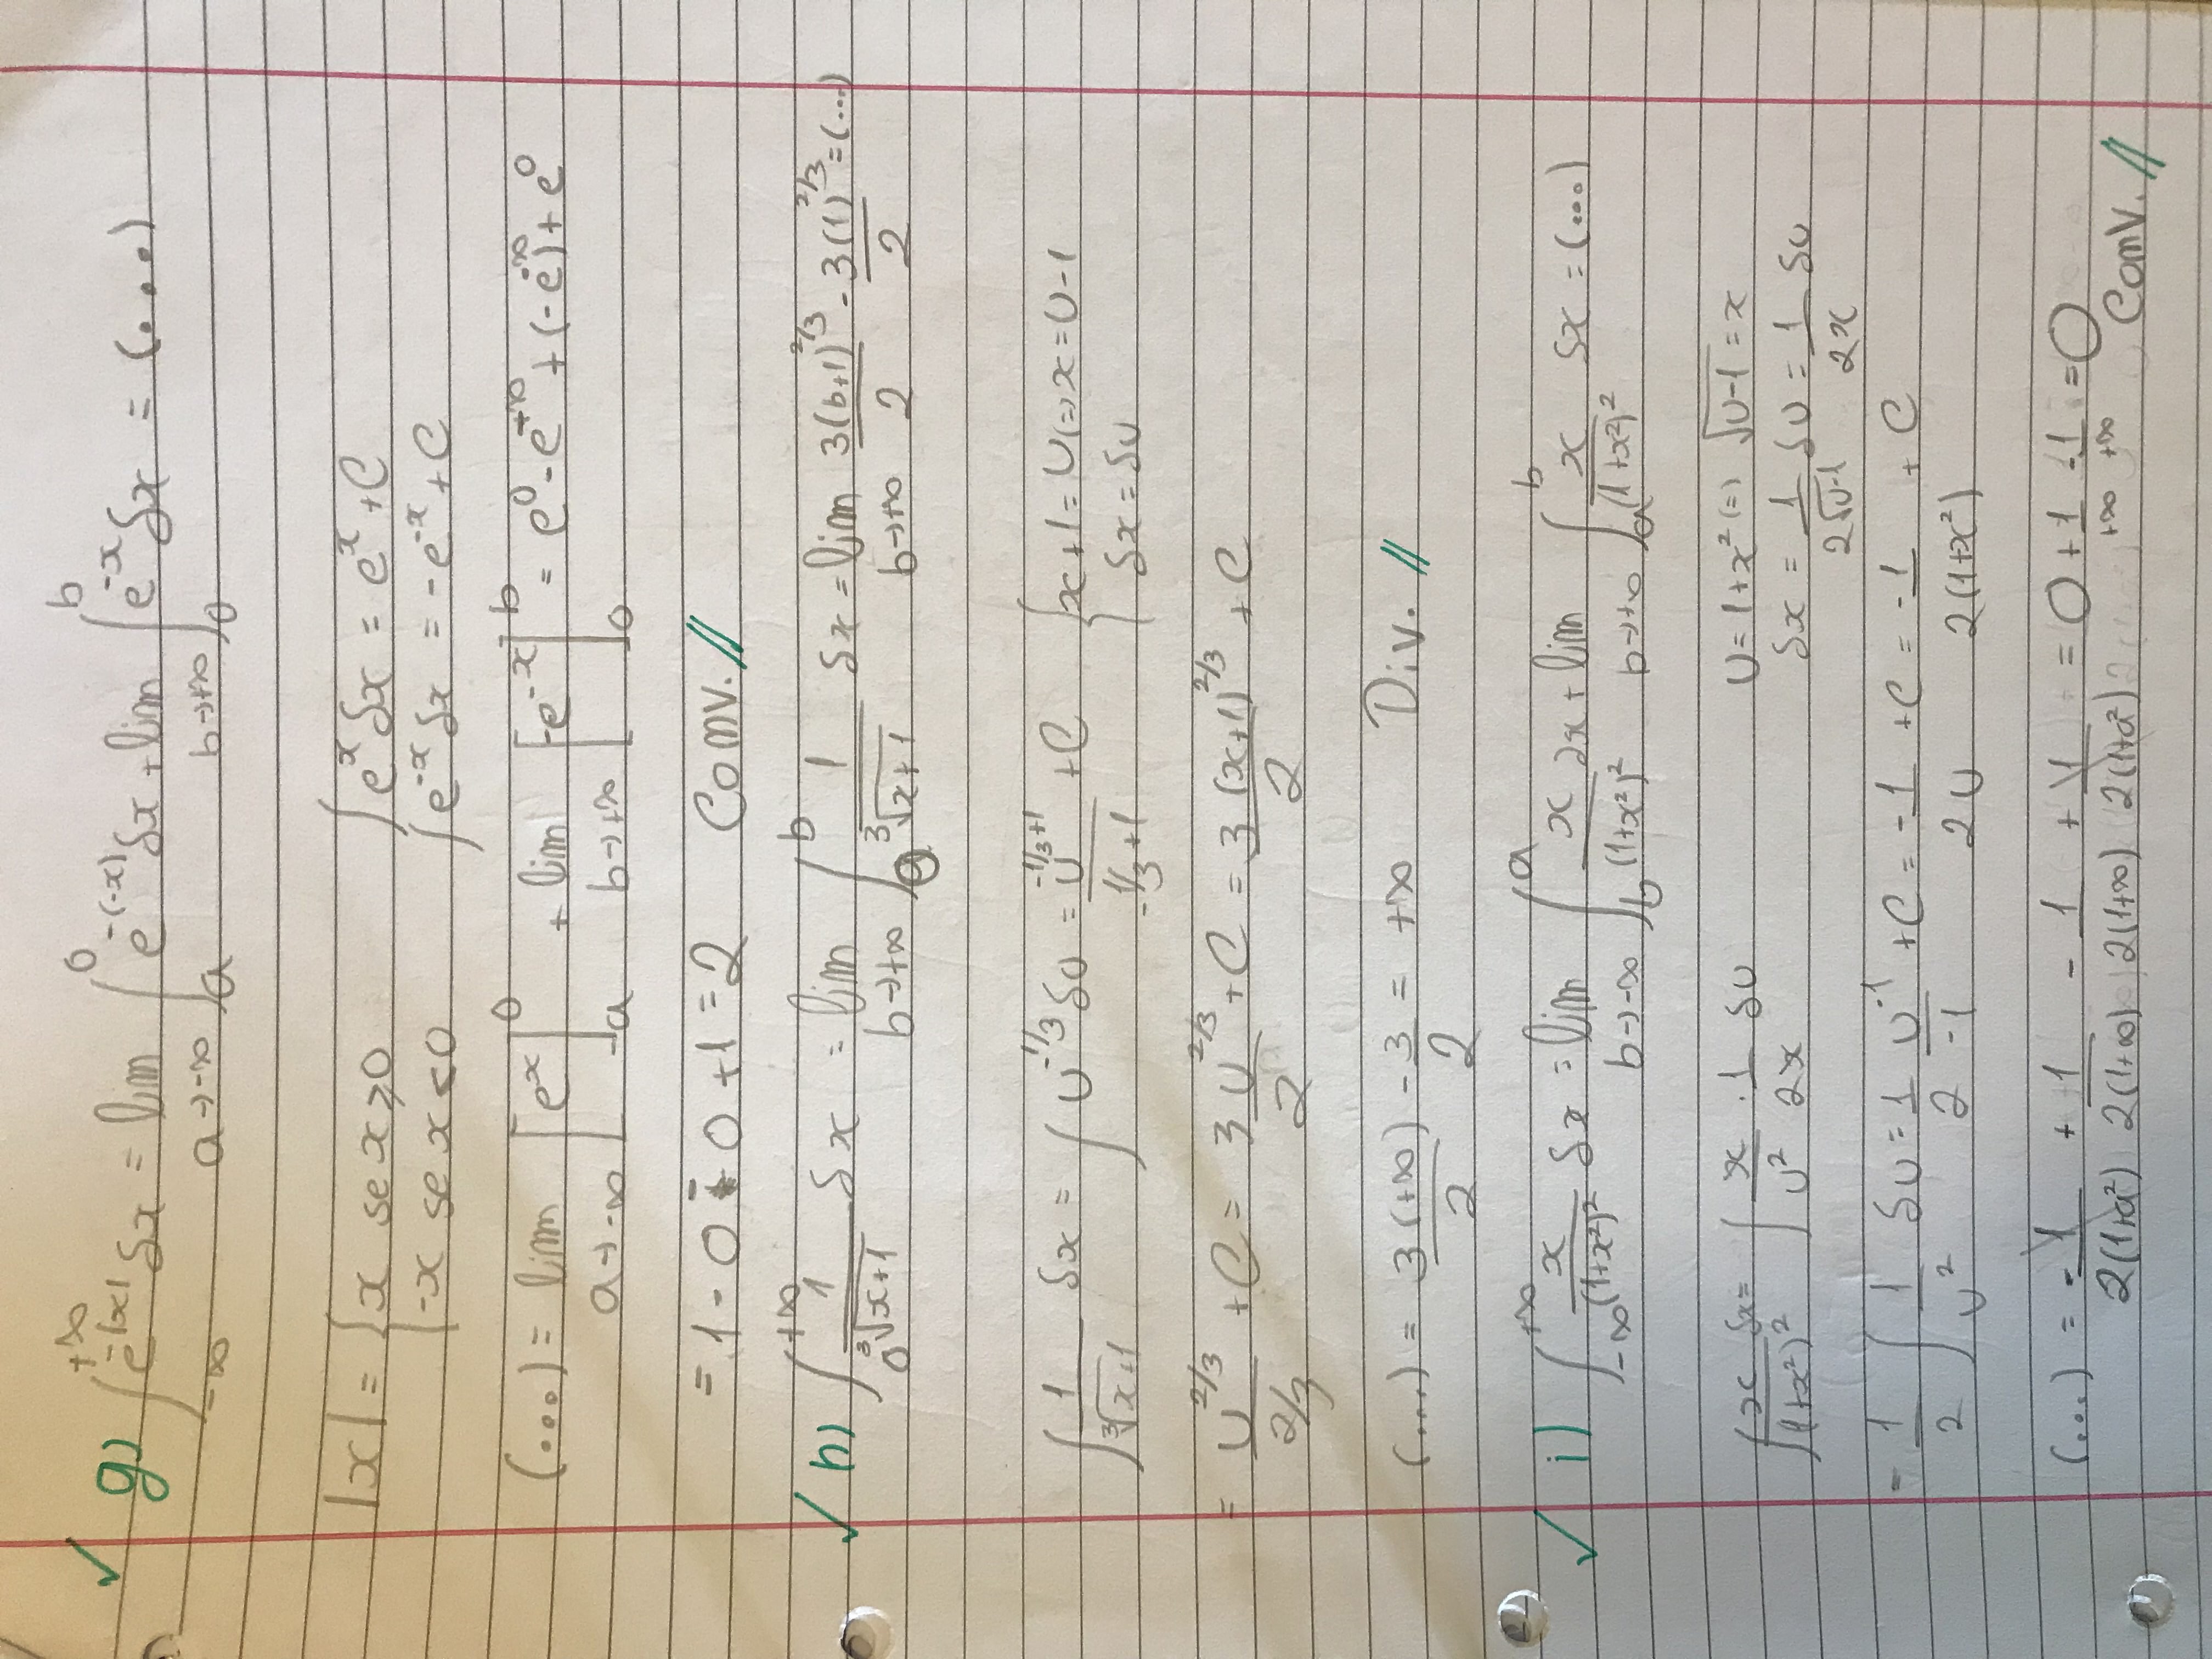 ✓ g) ∫_{-∞}^{+∞} e^{-|x|} δx = lim_{a→-∞} ∫_a^0 e^{-(-x)} δx + lim_{b→+∞} ∫_0^b e^{-x} δx = (...)
|x| = { x se x≥0    ∫ e^x δx = e^x + C
{ -x se x<0    ∫ e^{-x} δx = -e^{-x} + C
(...) = lim_{a→-∞} [e^x]_a^0 + lim_{b→+∞} [-e^{-x}]_0^b = e^0 - e^{+∞} + (-e^{-∞}) + e^0
= 1 - 0 - 0 + 1 = 2   Conv. //
✓ h) ∫_0^{+∞} 1/∛(x+1) δx = lim_{b→+∞} ∫_0^b 1/∛(x+1) δx = lim_{b→+∞} 3(b+1)^{2/3}/2 - 3(1)^{2/3}/2 = (...)
∫ 1/∛(x+1) δx = ∫ U^{-1/3} δU = U^{-1/3+1}/(-1/3+1) + C    { x+1 = U (=) x = U-1
δx = δU
= U^{2/3}/(2/3) + C = 3U^{2/3}/2 + C = 3(x+1)^{2/3}/2 + C
(...) = 3(+∞)/2 - 3/2 = +∞   Div. //
✓ i) ∫_{-∞}^{+∞} x/(1+x²)² δx = lim_{b→-∞} ∫_b^a x/(1+x²)² δx + lim_{b→+∞} ∫_a^b x/(1+x²)² δx = (...)
∫ x/(1+x²)² δx = ∫ x/U² · 1/2x δU    U = 1+x² (=) √(U-1) = x
δx = 1/(2√(U-1)) δU = 1/2x δU
= 1/2 ∫ 1/U² δU = 1/2 U^{-1}/-1 + C = -1/2U + C = -1/(2(1+x²)) + C
(...) = -1/(2(1+a²)) + 1/(2(1+∞)) - 1/(2(1+∞)) + 1/(2(1+a²)) = 0 + 1/+∞ - 1/+∞ = 0
Conv. //